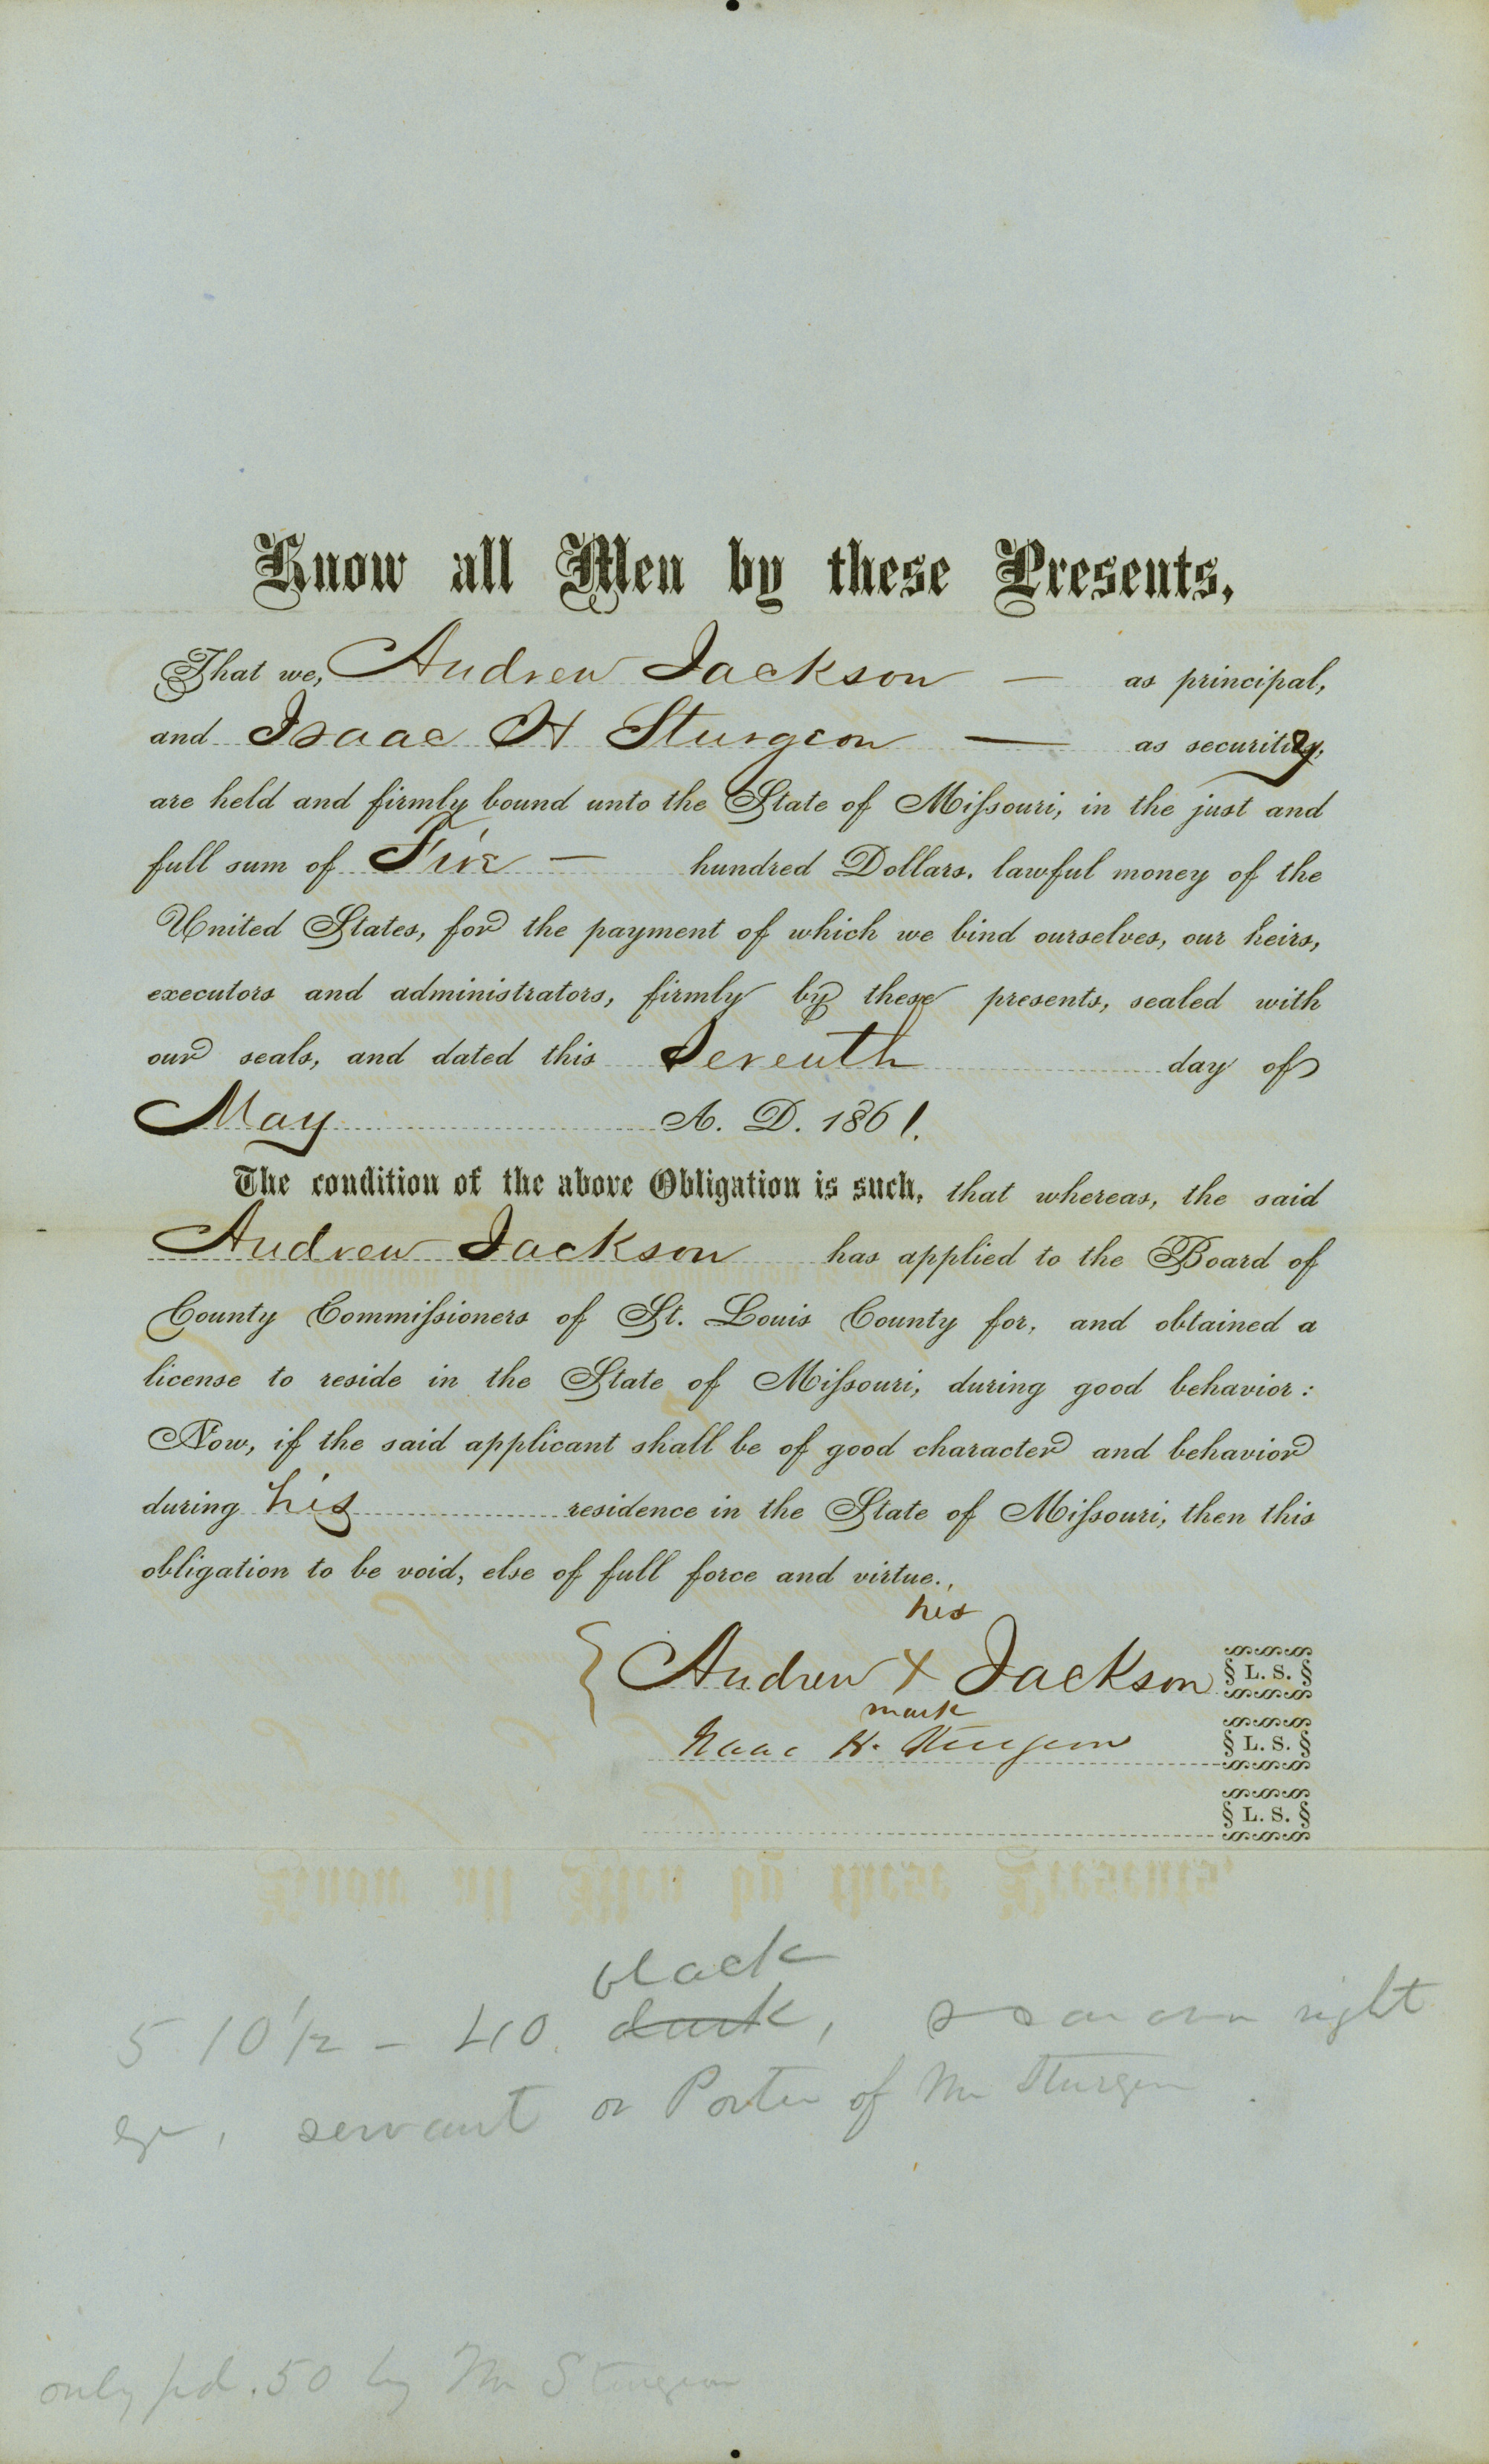 Know all Men by these Presents,
That we, Andrew Jackson — as principal,
and Isaac H Sturgeon — as security,
are held and firmly bound unto the State of Miſsouri, in the just and
full sum of Five — hundred Dollars, lawful money of the
United States, for the payment of which we bind ourselves, our heirs,
executors and administrators, firmly by these presents, sealed with
our seals, and dated this Seventh day of
May A. D. 1861.
The condition of the above Obligation is such, that whereas, the said
Andrew Jackson has applied to the Board of
County Commiſsioners of St. Louis County for, and obtained a
license to reside in the State of Miſsouri, during good behavior:
Now, if the said applicant shall be of good character and behavior
during his residence in the State of Miſsouri, then this
obligation to be void, else of full force and virtue.
his
Andrew X Jackson L. S.
mark
Isaac H. Sturgeon L. S.
L. S.
black
5 10 1/2 - 40. dark, scar over right
eye, servant or Porter of Mr Sturgeon
only pd. .50 by Mr Sturgeon